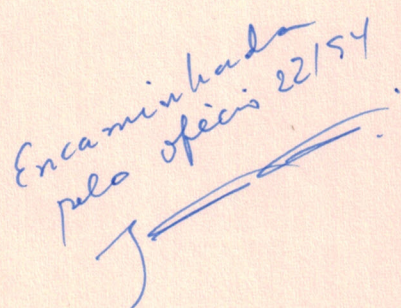 Encaminhada
pelo ofício 22/94